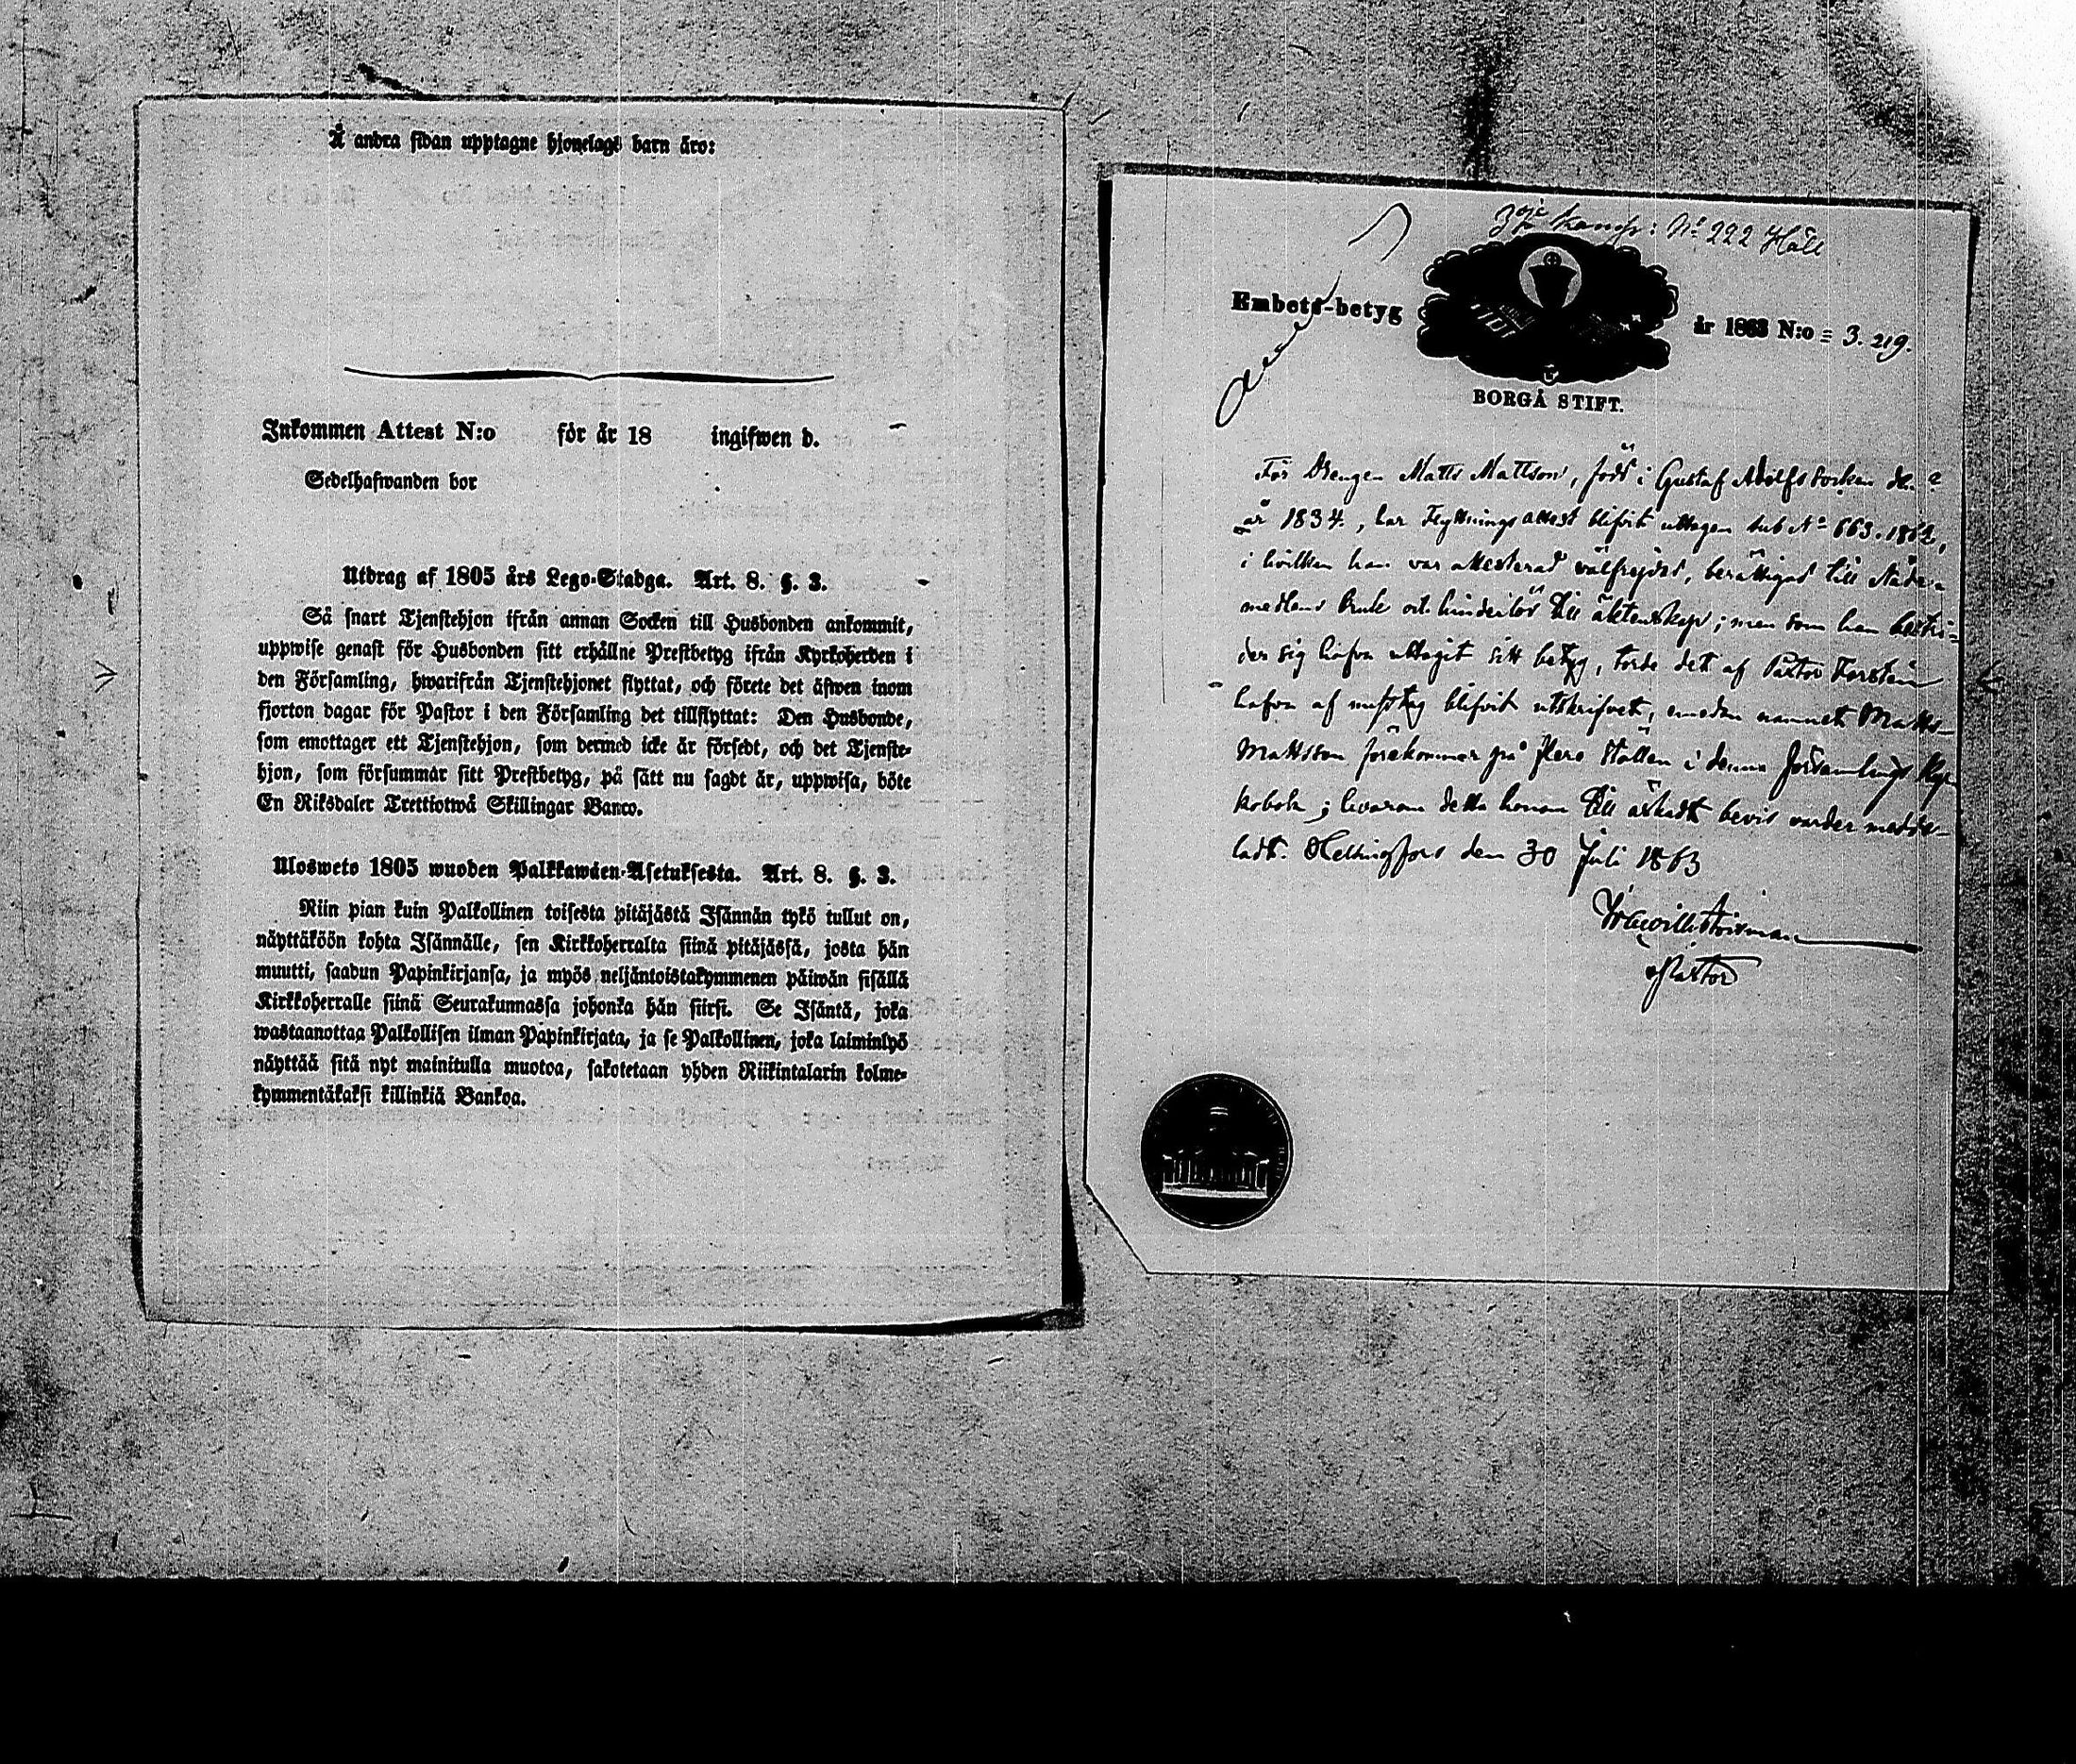 Å andra sidan upptagne hjonelags barn äro:
Inkommen Attest N:o för år 18 ingifwen d.
Sedelhafwanden bor
Utdrag af 1805 års Lego-Stadga. Art. 8. §. 3.
Så snart Tjenstehjon ifrån annan Socken till Husbonden ankommit,
uppwise genast för Husbonden sitt erhållne Prestbetyg ifrån Kyrkoherden i
den Församling, hwarifrån Tjenstehjonet flyttat, och förete det äfwen inom
fjorton dagar för Pastor i den Församling det tillflyttat: Den Husbonde,
som emottager ett Tjenstehjon, som dermed icke är försedt, och det Tjenste-
hjon, som försummar sitt Prestbetyg, på sätt nu sagdt är, uppwisa, böte
En Riksdaler Trettiotwå Skillingar Banco.
Ulosweto 1805 wuoden Palkkawäen-Asetuksesta. Art. 8. §. 3.
Niin pian kuin Palkollinen toisesta pitäjästä Isännän tykö tullut on,
näyttäköön kohta Isännälle, sen Kirkkoherralta siinä pitäjässä, josta hän
muutti, saadun Papinkirjansa, ja myös neljäntoistakymmenen päiwän sisällä
Kirkkoherralle siinä Seurakunnassa johonka hän siirsi. Se Isäntä, joka
wastaanottaa Palkollisen ilman Papinkirjata, ja se Palkollinen, joka laiminlyö
näyttää sitä nyt mainitulla muotoa, sakotetaan yhden Riikintalarin kolme-
kymmentäkaksi killinkiä Bankoa.
N:o 222 Håll
Embets-betyg år 1863 N:o = 3. 219.
BORGÅ STIFT.
För Drengen Matts Mattson, född i Gustaf Adolfs socken de.
år 1834, har Flyttningsattest blifvit uttagen sub No 663. 1862,
i hvilken han var attesterad välfrejdad, berättigad till Nåde-
medlens bruk och hinderlös till äktenskap; men som han bestri-
der sig hafva uttagit sitt betyg, torde det af Pastor Forstén
hafva af misstag blifvit utskrifvet, emedan namnet Matts
Mattsson förekommer på flere ställen i denna församlings Kyr-
kobok; hvarom detta honom till äskadt bevis varder medde-
ladt. Helsingfors den 30 Juli 1863
Pastor